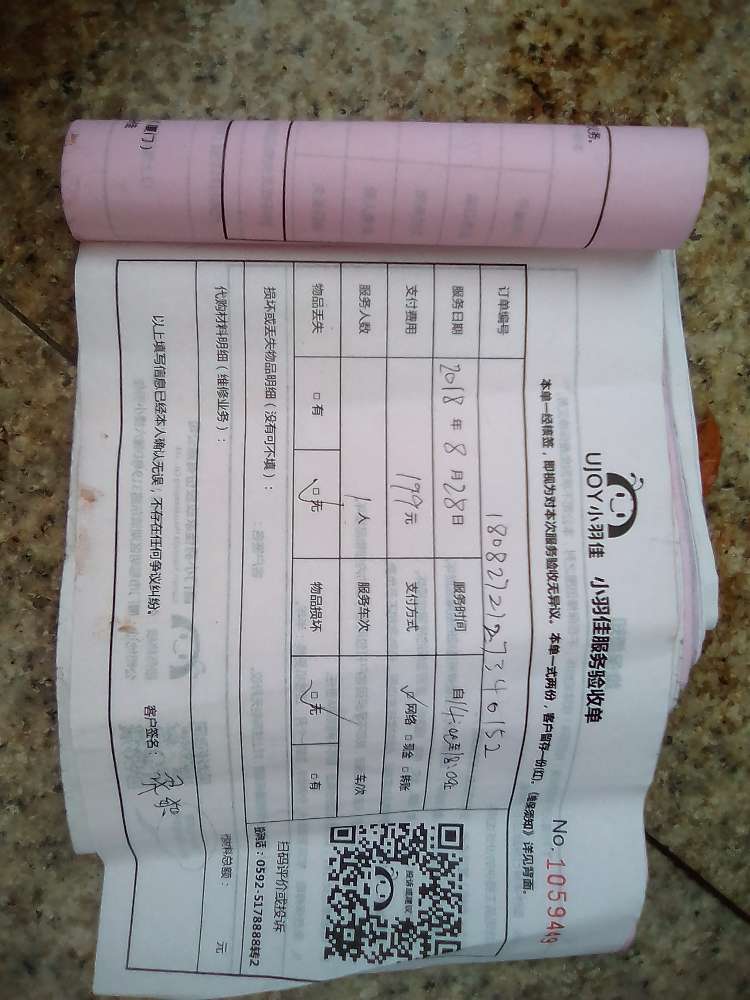 UJOY小羽佳 小羽佳服务验收单
NO. 1059449
本单一经横签，即视为对本次服务验收无异议。本单一式两份，客户留存一份(红)。《维保须知》详见背面。
订单编号 1808272127340152
服务日期 2018 年 8 月 28 日 服务时间 自14:00至18:00
支付费用 199 元 支付方式 ☑网络 □现金 □转账
服务人数 1 人 服务车次 车/次
物品丢失 □有 ☑无 物品损坏 ☑无 □有
投诉或建议
扫码评价或投诉
0592-5178888转2
损坏或丢失物品明细（没有可不填）：
代购材料明细（维修业务）：
总额： 元
以上填写信息已经本人确认无误，不存在任何争议纠纷。
客户签名：
（厦门）